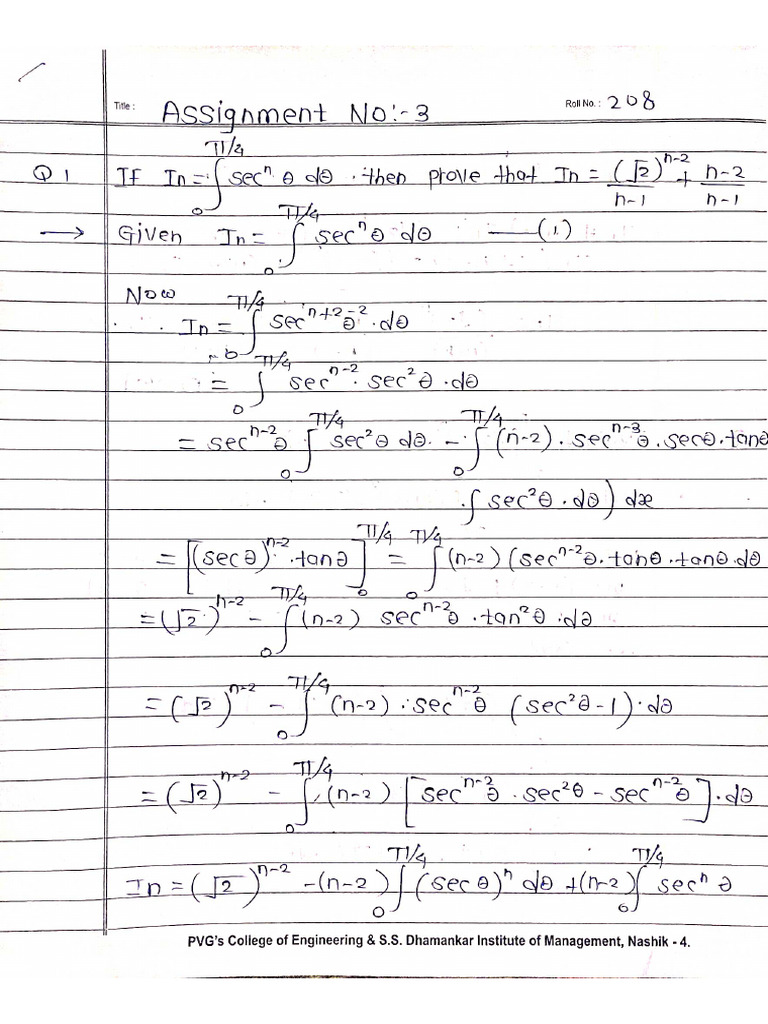 Title : Assignment No:-3 Roll No. : 208
Q 1 If In = ∫₀^π/4 secⁿ θ dθ . then prove that In = (√2)^n-2 / n-1 + n-2 / n-1
→ Given In = ∫₀^π/4 secⁿθ dθ —— (1)
Now
In = ∫₀^π/4 sec^n+2-2 θ . dθ
= ∫₀^π/4 sec^n-2 . sec²θ . dθ
= sec^n-2 θ ∫₀^π/4 sec²θ dθ . - ∫₀^π/4 (n-2) . sec^n-3 θ . secθ . tanθ
. ∫ sec²θ . dθ) dx
= [(sec θ)^n-2 . tanθ]₀^π/4 = ∫₀^π/4 (n-2) (sec^n-2 θ . tanθ . tanθ . dθ
= (√2)^n-2 - ∫₀^π/4 (n-2) sec^n-2 θ . tan²θ . dθ
= (√2)^n-2 - ∫₀^π/4 (n-2) . sec^n-2 θ (sec²θ - 1) . dθ
= (√2)^n-2 - ∫₀^π/4 (n-2) [sec^n-2 θ . sec²θ - sec^n-2 θ] . dθ
In = (√2)^n-2 - (n-2) ∫₀^π/4 (sec θ)ⁿ dθ + (n-2) ∫₀^π/4 secⁿ θ
PVG's College of Engineering & S.S. Dhamankar Institute of Management, Nashik - 4.